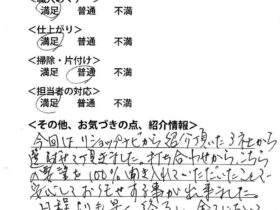 満足 普通 不満
＜仕上がり＞
満足 普通 不満
＜掃除・片付け＞
満足 普通 不満
＜担当者の対応＞
満足 普通 不満
＜その他、お気づきの点、紹介情報＞
今回はリショップナビから紹介頂いた3社から
選ばせて頂きました。打ち合わせから、こちら
の要望を100%聞き入れていただいたことで
安心しておまかせする事が出来ました